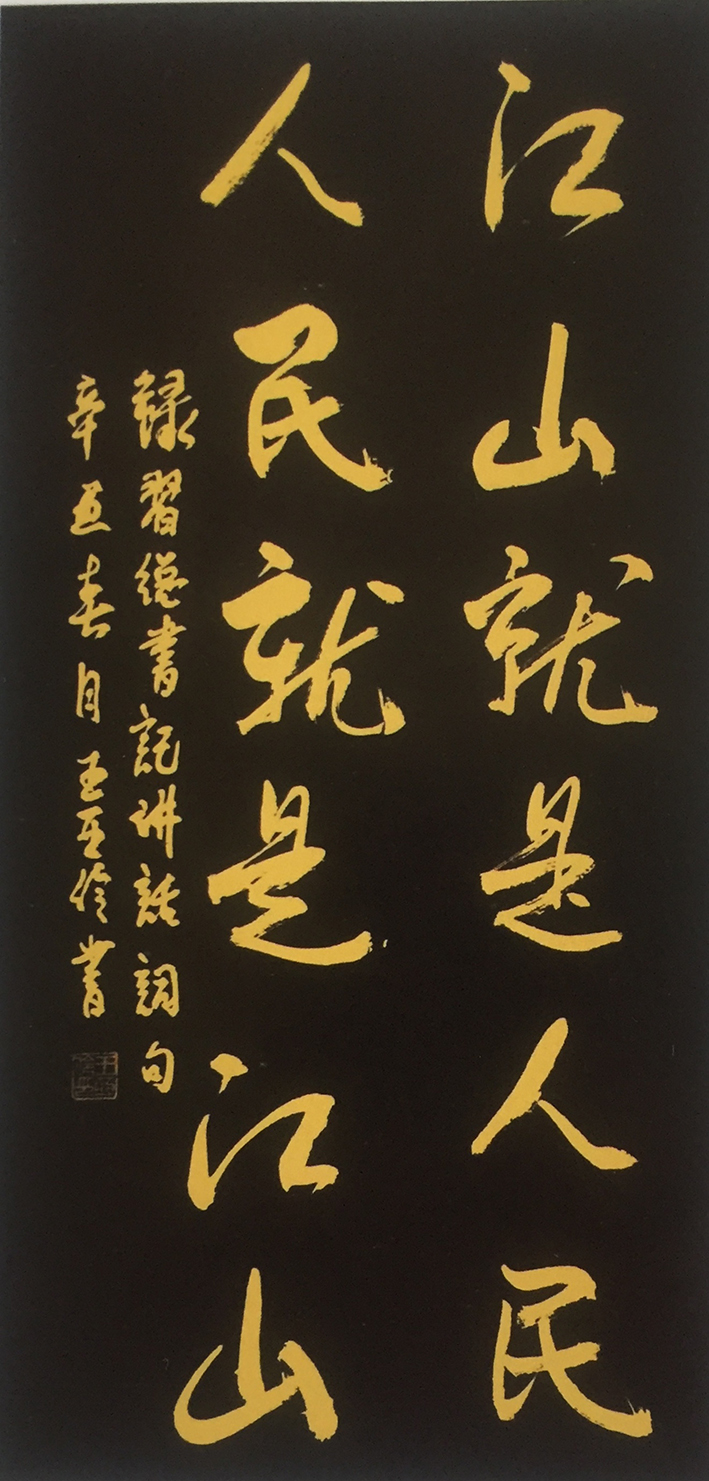 江山就是人民
人民就是江山
録習總書記讲話詞句
辛丑春月王亚伶書